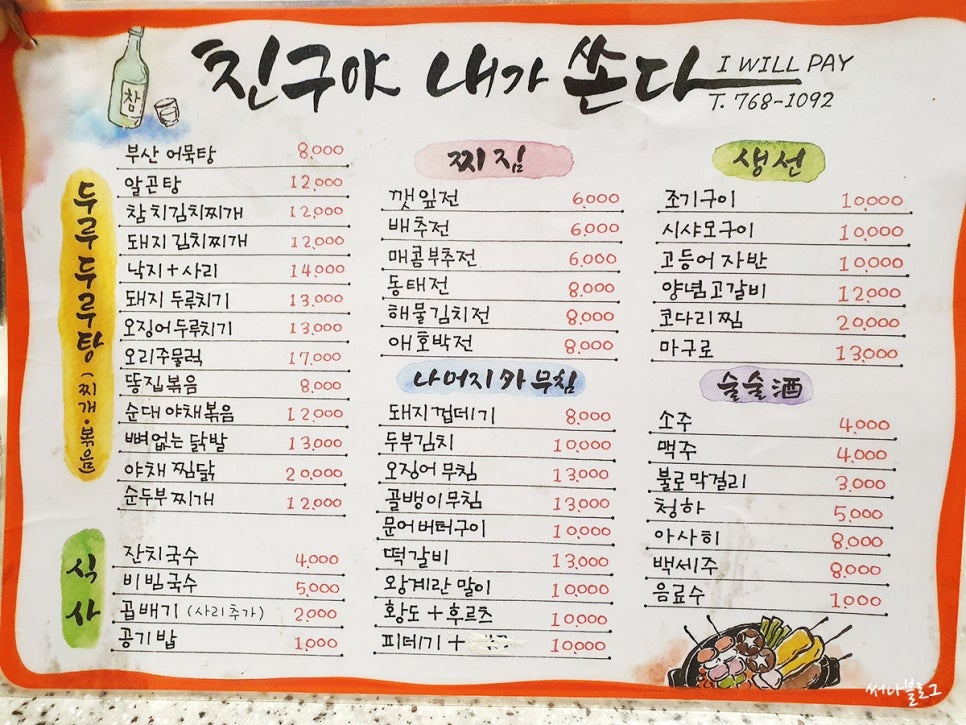 참
친구야 내가 쏜다
I WILL PAY
T. 768-1092
두루두루탕 (찌개·볶음)
부산 어묵탕 8,000
알곤탕 12,000
참치김치찌개 12,000
돼지김치찌개 12,000
낙지+사리 14,000
돼지 두루치기 13,000
오징어두루치기 13,000
오리주물럭 17,000
똥집볶음 8,000
순대야채볶음 12,000
뼈없는 닭발 13,000
야채 찜닭 20,000
순두부찌개 12,000
식사
잔치국수 4,000
비빔국수 5,000
곱배기 (사리추가) 2,000
공기밥 1,000
찌짐
깻잎전 6,000
배추전 6,000
매콤부추전 6,000
동태전 8,000
해물김치전 8,000
애호박전 8,000
나머지 카 무침
돼지껍데기 8,000
두부김치 10,000
오징어무침 13,000
골뱅이무침 13,000
문어버터구이 10,000
떡갈비 13,000
왕계란 말이 10,000
황도+후르츠 10,000
피데기+ 10,000
생선
조기구이 10,000
시샤모구이 10,000
고등어자반 10,000
양념고갈비 12,000
코다리찜 20,000
마구로 13,000
술술酒
소주 4,000
맥주 4,000
불로막걸리 3,000
청하 5,000
아사히 8,000
백세주 8,000
음료수 1,000
써나블로그